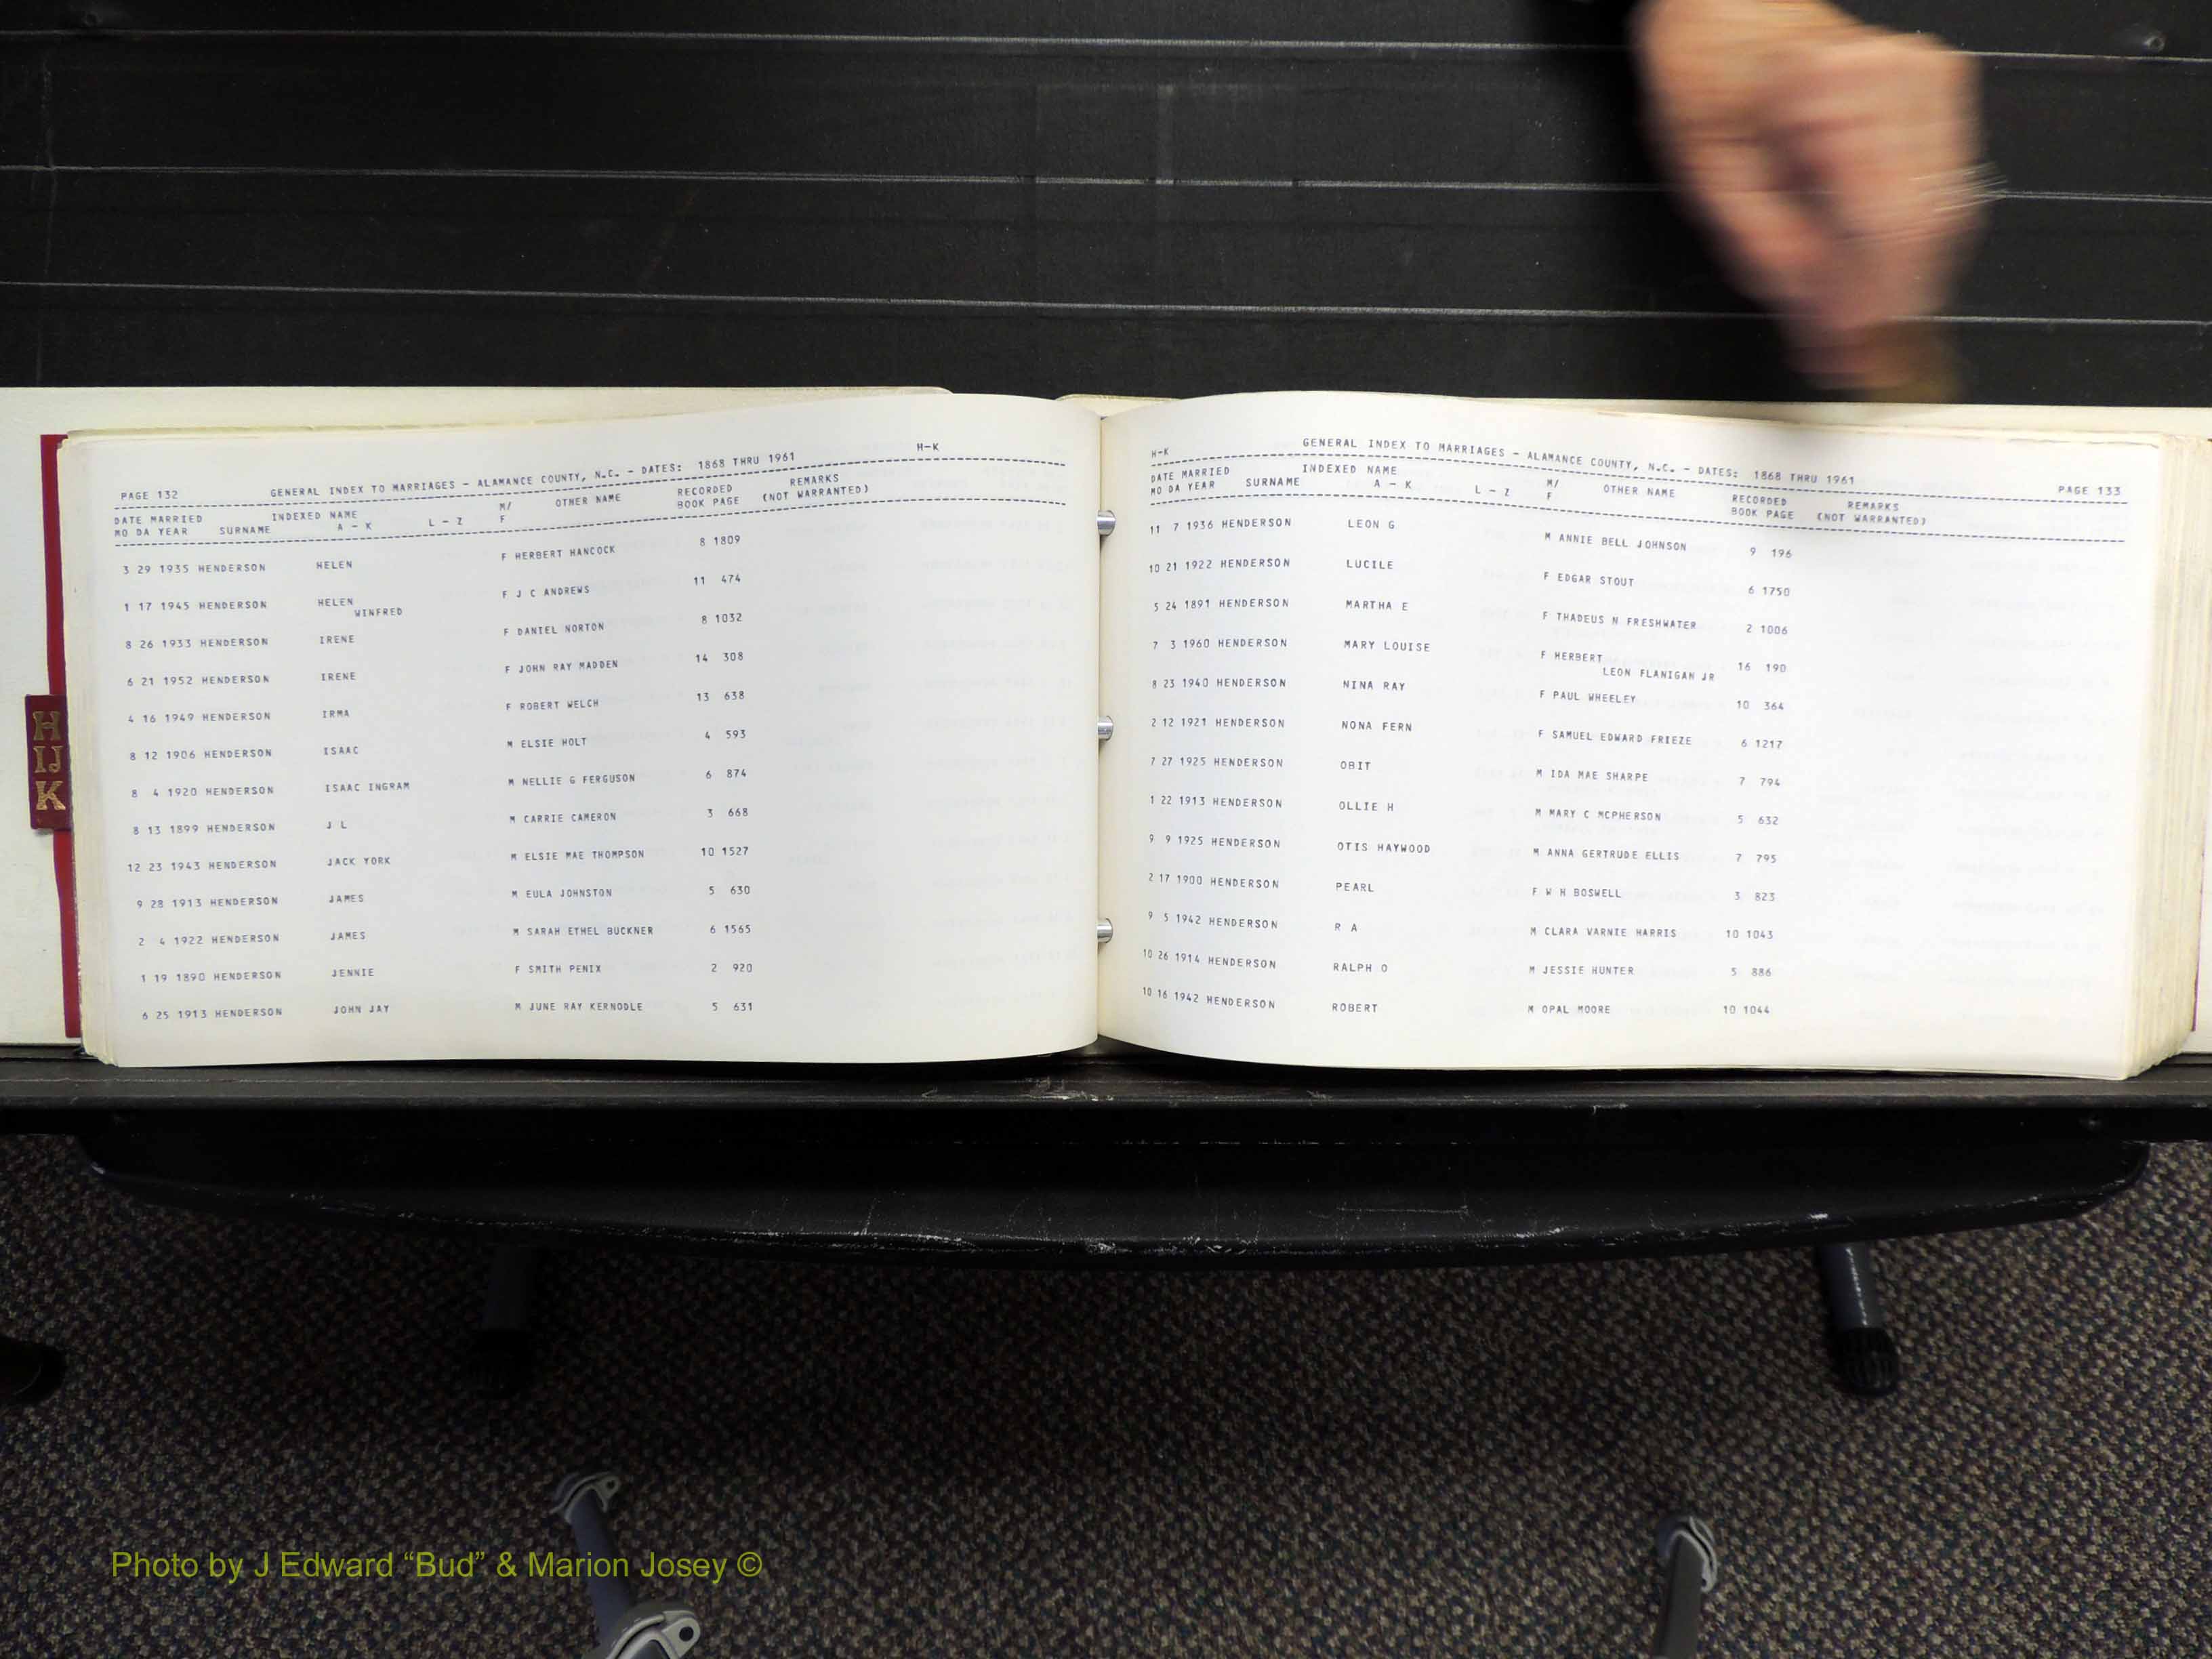 H-K
PAGE 132 GENERAL INDEX TO MARRIAGES - ALAMANCE COUNTY, N.C. - DATES: 1868 THRU 1961
DATE MARRIED INDEXED NAME M/ OTHER NAME RECORDED REMARKS
MO DA YEAR SURNAME A - K L - Z F BOOK PAGE (NOT WARRANTED)
3 29 1935 HENDERSON HELEN F HERBERT HANCOCK 8 1809
1 17 1945 HENDERSON HELEN F J C ANDREWS 11 474
WINFRED
8 26 1933 HENDERSON IRENE F DANIEL NORTON 8 1032
6 21 1952 HENDERSON IRENE F JOHN RAY MADDEN 14 308
4 16 1949 HENDERSON IRMA F ROBERT WELCH 13 638
8 12 1906 HENDERSON ISAAC M ELSIE HOLT 4 593
8 4 1920 HENDERSON ISAAC INGRAM M NELLIE G FERGUSON 6 874
8 13 1899 HENDERSON J L M CARRIE CAMERON 3 668
12 23 1943 HENDERSON JACK YORK M ELSIE MAE THOMPSON 10 1527
9 28 1913 HENDERSON JAMES M EULA JOHNSTON 5 630
2 4 1922 HENDERSON JAMES M SARAH ETHEL BUCKNER 6 1565
1 19 1890 HENDERSON JENNIE F SMITH PENIX 2 920
6 25 1913 HENDERSON JOHN JAY M JUNE RAY KERNODLE 5 631
H
IJ
K
H-K GENERAL INDEX TO MARRIAGES - ALAMANCE COUNTY, N.C. - DATES: 1868 THRU 1961 PAGE 133
DATE MARRIED INDEXED NAME M/ OTHER NAME RECORDED REMARKS
MO DA YEAR SURNAME A - K L - Z F BOOK PAGE (NOT WARRANTED)
11 7 1936 HENDERSON LEON G M ANNIE BELL JOHNSON 9 196
10 21 1922 HENDERSON LUCILE F EDGAR STOUT 6 1750
5 24 1891 HENDERSON MARTHA E F THADEUS N FRESHWATER 2 1006
7 3 1960 HENDERSON MARY LOUISE F HERBERT 16 190
LEON FLANIGAN JR
8 23 1940 HENDERSON NINA RAY F PAUL WHEELEY 10 364
2 12 1921 HENDERSON NONA FERN F SAMUEL EDWARD FRIEZE 6 1217
7 27 1925 HENDERSON OBIT M IDA MAE SHARPE 7 794
1 22 1913 HENDERSON OLLIE H M MARY C MCPHERSON 5 632
9 9 1925 HENDERSON OTIS HAYWOOD M ANNA GERTRUDE ELLIS 7 795
2 17 1900 HENDERSON PEARL F W H BOSWELL 3 823
9 5 1942 HENDERSON R A M CLARA VARNIE HARRIS 10 1043
10 26 1914 HENDERSON RALPH O M JESSIE HUNTER 5 886
10 16 1942 HENDERSON ROBERT M OPAL MOORE 10 1044
Photo by J Edward “Bud” & Marion Josey ©